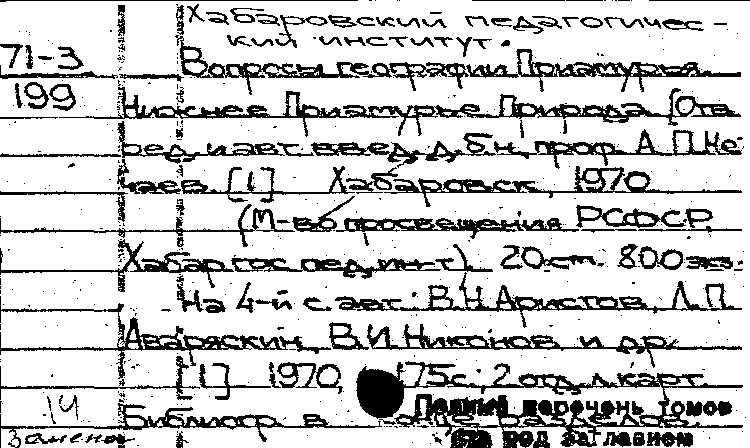 Хабаровский педагогичес-
кий институт.
71-3 Вопросы географии Приамурья.
199 Нижнее Приамурье Природа [Отв
ред. и авт. введ. д.б.н. проф. А.П.Не-
чаев. [1] Хабаровск, 1970
(М-во просвещения РСФСР.
Хабар гос пед. ин-т). 20 см. 800 экз.
На 4-й с. авт.: В.Н. Аристов, Л.П.
Аваряскин, В.И. Никонов и др.
[1] 1970, 175с.; 2 отд. л. карт.
14 Библиогр. в конце разделов.
Полный перечень томов
замена см под заглавием